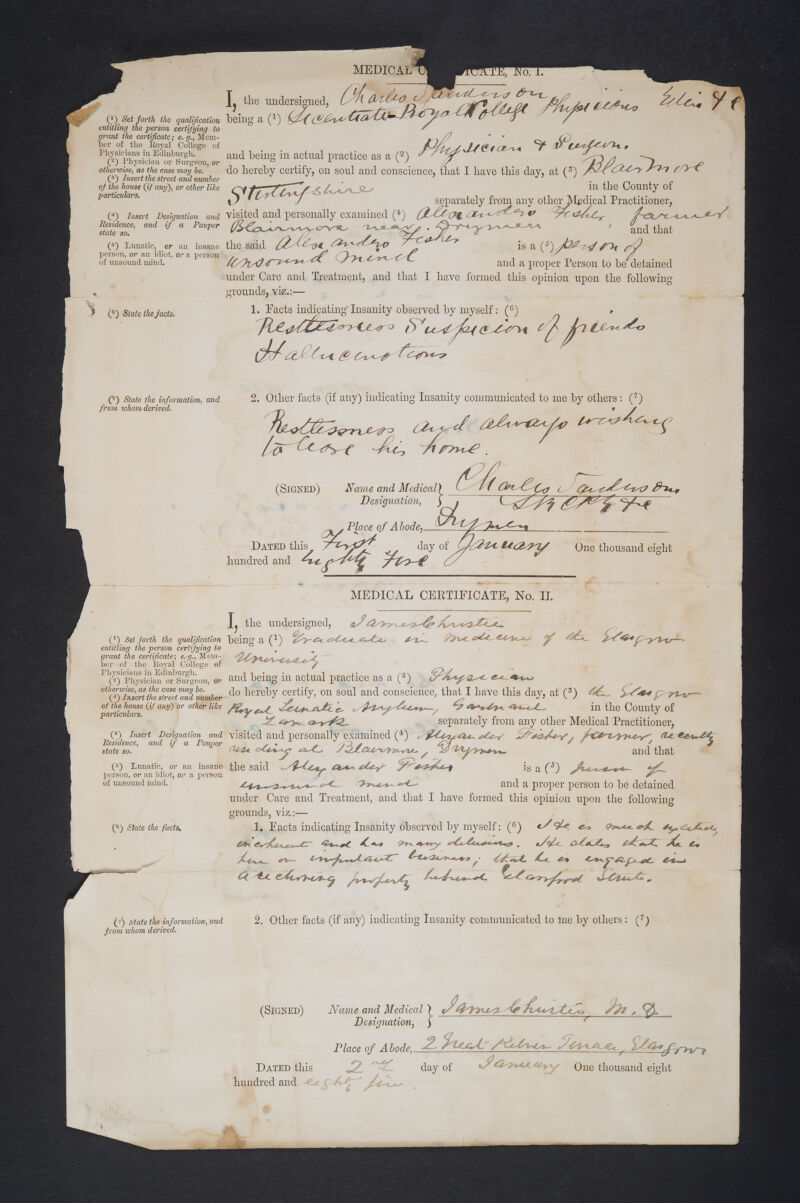 MEDICAL C ICATE, No. I.
I, the undersigned, Charles Sanderson
being a (¹) Licentiate Royal College Physicians Edin &c
(¹) Set forth the qualification
entitling the person certifying to
grant the certificate; e. g., Mem-
ber of the Royal College of
Physicians in Edinburgh.
(²) Physician or Surgeon, or
otherwise, as the case may be.
(³) Insert the street and number
of the house (if any), or other like
particulars.
and being in actual practice as a (²) Physician & Surgeon.
do hereby certify, on soul and conscience, that I have this day, at (³) Blairmore
Stirlingshire in the County of
separately from any other Medical Practitioner,
(⁴) Insert Designation and
Residence, and if a Pauper
state so.
visited and personally examined (⁴) Alexander Fisher farmer
Blairmore near Drymen and that
(⁵) Lunatic, or an insane
person, or an idiot, or a person
of unsound mind.
the said Alexander Fisher is a (⁵) person of
unsound mind and a proper Person to be detained
under Care and Treatment, and that I have formed this opinion upon the following
grounds, viz.:—
(⁶) State the facts.
1. Facts indicating Insanity observed by myself: (⁶)
Restlessness Suspicion of friends
Hallucinations
(⁷) State the information, and
from whom derived.
2. Other facts (if any) indicating Insanity communicated to me by others: (⁷)
Restlessness and always wishing
to leave his home.
(SIGNED) Name and Medical Designation, Charles Sanderson
LRCP &c
Place of Abode, Drymen
DATED this First day of January One thousand eight
hundred and eighty five
MEDICAL CERTIFICATE, No. II.
I, the undersigned, James Christie
(¹) Set forth the qualification
entitling the person certifying to
grant the certificate; e. g., Mem-
ber of the Royal College of
Physicians in Edinburgh.
(²) Physician or Surgeon, or
otherwise, as the case may be.
(³) Insert the street and number
of the house (if any) or other like
particulars.
being a (¹) Graduate in medicine of the Glasgow
University
and being in actual practice as a (²) Physician
do hereby certify, on soul and conscience, that I have this day, at (³) the Glasgow
Royal Lunatic Asylum, Gartnavel in the County of
Lanark separately from any other Medical Practitioner,
(⁴) Insert Designation and
Residence, and if a Pauper
state so.
visited and personally examined (⁴) Alexander Fisher, farmer, recently
residing at Blairmore, Drymen and that
(⁵) Lunatic, or an insane
person, or an idiot, or a person
of unsound mind.
the said Alexander Fisher is a (⁵) person of
unsound mind and a proper person to be detained
under Care and Treatment, and that I have formed this opinion upon the following
grounds, viz.:—
(⁶) State the facts.
1. Facts indicating Insanity observed by myself: (⁶) He is much excited,
incoherent and has many delusions. He states that he is
here on important business; that he is engaged in
auctioning property behind Street.
(⁷) State the information, and
from whom derived.
2. Other facts (if any) indicating Insanity communicated to me by others: (⁷)
(SIGNED) Name and Medical Designation, James Christie, M. D.
Place of Abode, 2 Great Kelvin Terrace, Glasgow
DATED this 2nd day of January One thousand eight
hundred and eighty five.